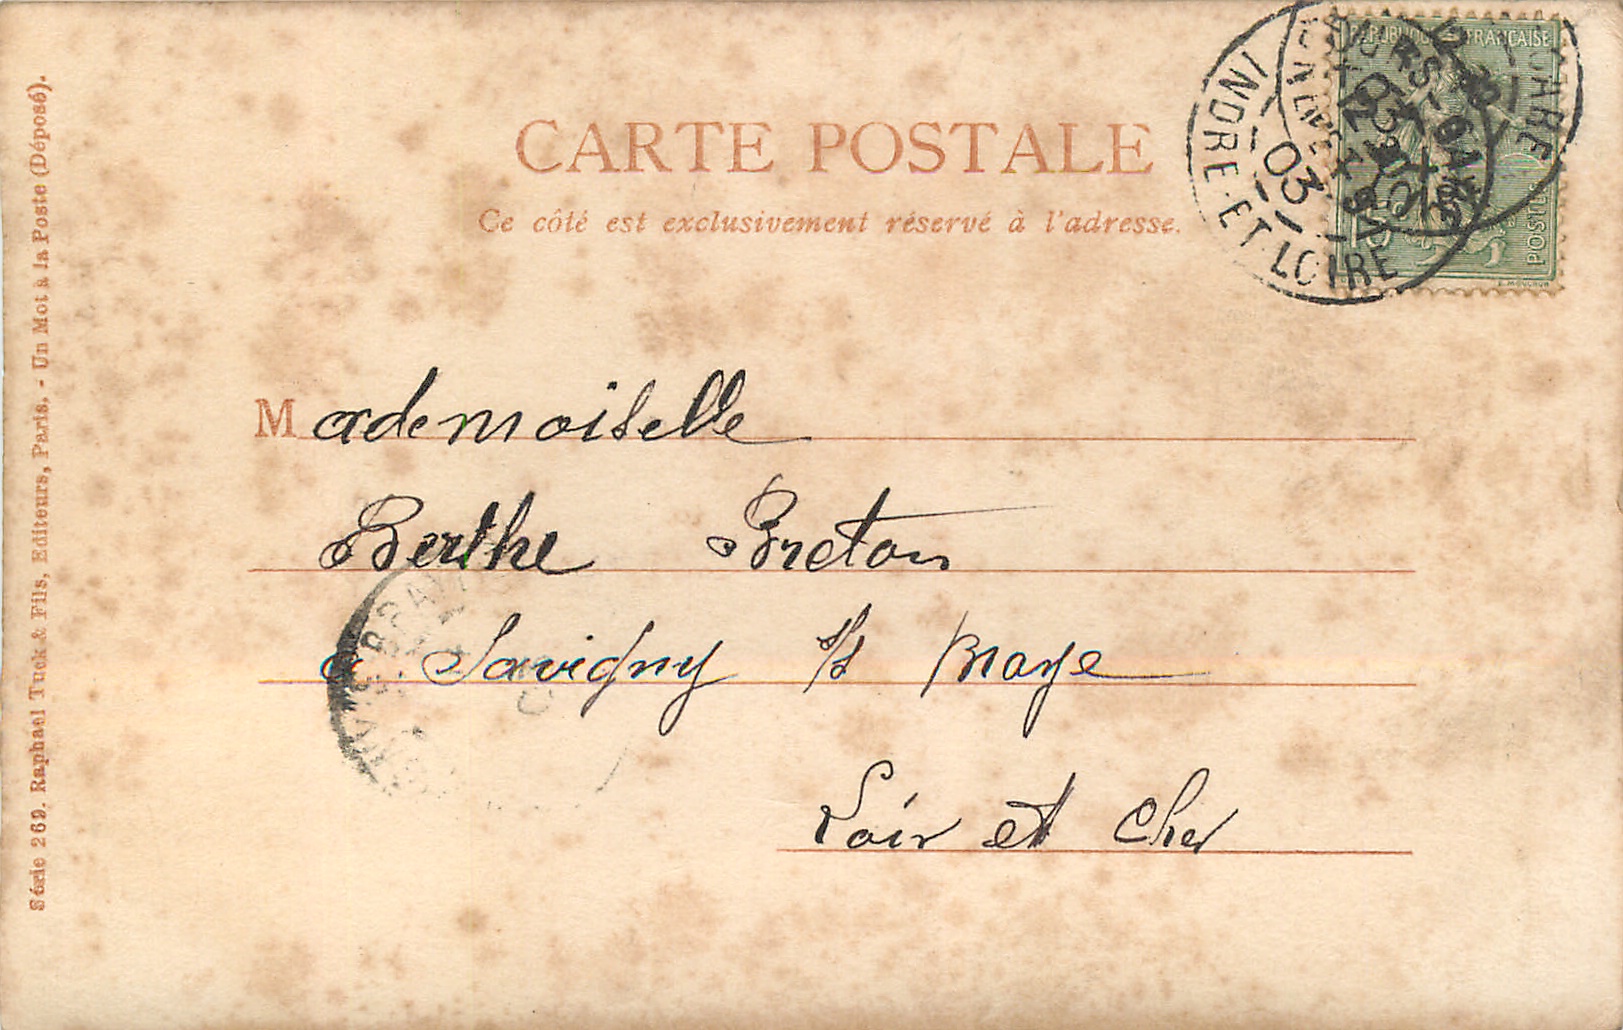 CARTE POSTALE
Ce côté est exclusivement réservé à l'adresse.
RÉPUBLIQUE FRANÇAISE
POSTES
E. MOUCHON
INDRE-ET-LOIRE
03
Mademoiselle
Berthe Breton
à Savigny s/s Braye
Loir et Cher
Série 269. Raphael Tuck & Fils, Editeurs, Paris. - Un Mot à la Poste (Déposé).